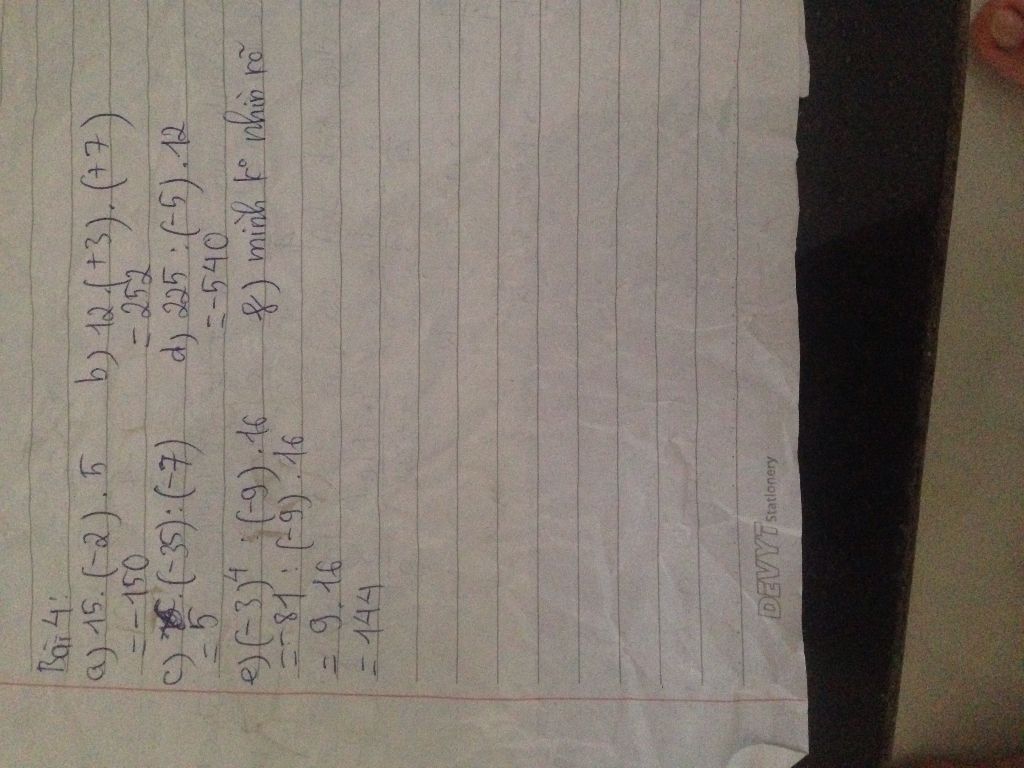 Bài 4:
a) 15.(-2).5 b) 12(+3).(+7)
= -150 = 252
c) .(-35):(-7) d) 225:(-5).12
= 5 = -540
e) (-3)⁴ : (-9).16 f) mình k° nhìn rõ
= -81 : (-9).16
= 9.16
= 144
DEVYT Stationery